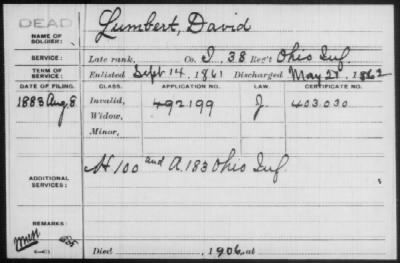 DEAD
NAME OF SOLDIER: Lumbert, David
SERVICE: Late rank, Co. I, 38 Reg't Ohio Inf.
TERM OF SERVICE: Enlisted Sept 14, 1861 Discharged May 21, 1862
DATE OF FILING. CLASS. APPLICATION NO. LAW. CERTIFICATE NO.
1883 Aug 8 Invalid, 492199 J. 403.030
Widow,
Minor,
ADDITIONAL SERVICES: H 100 2nd A. 183 Ohio Inf.
REMARKS:
Died , 1906, at